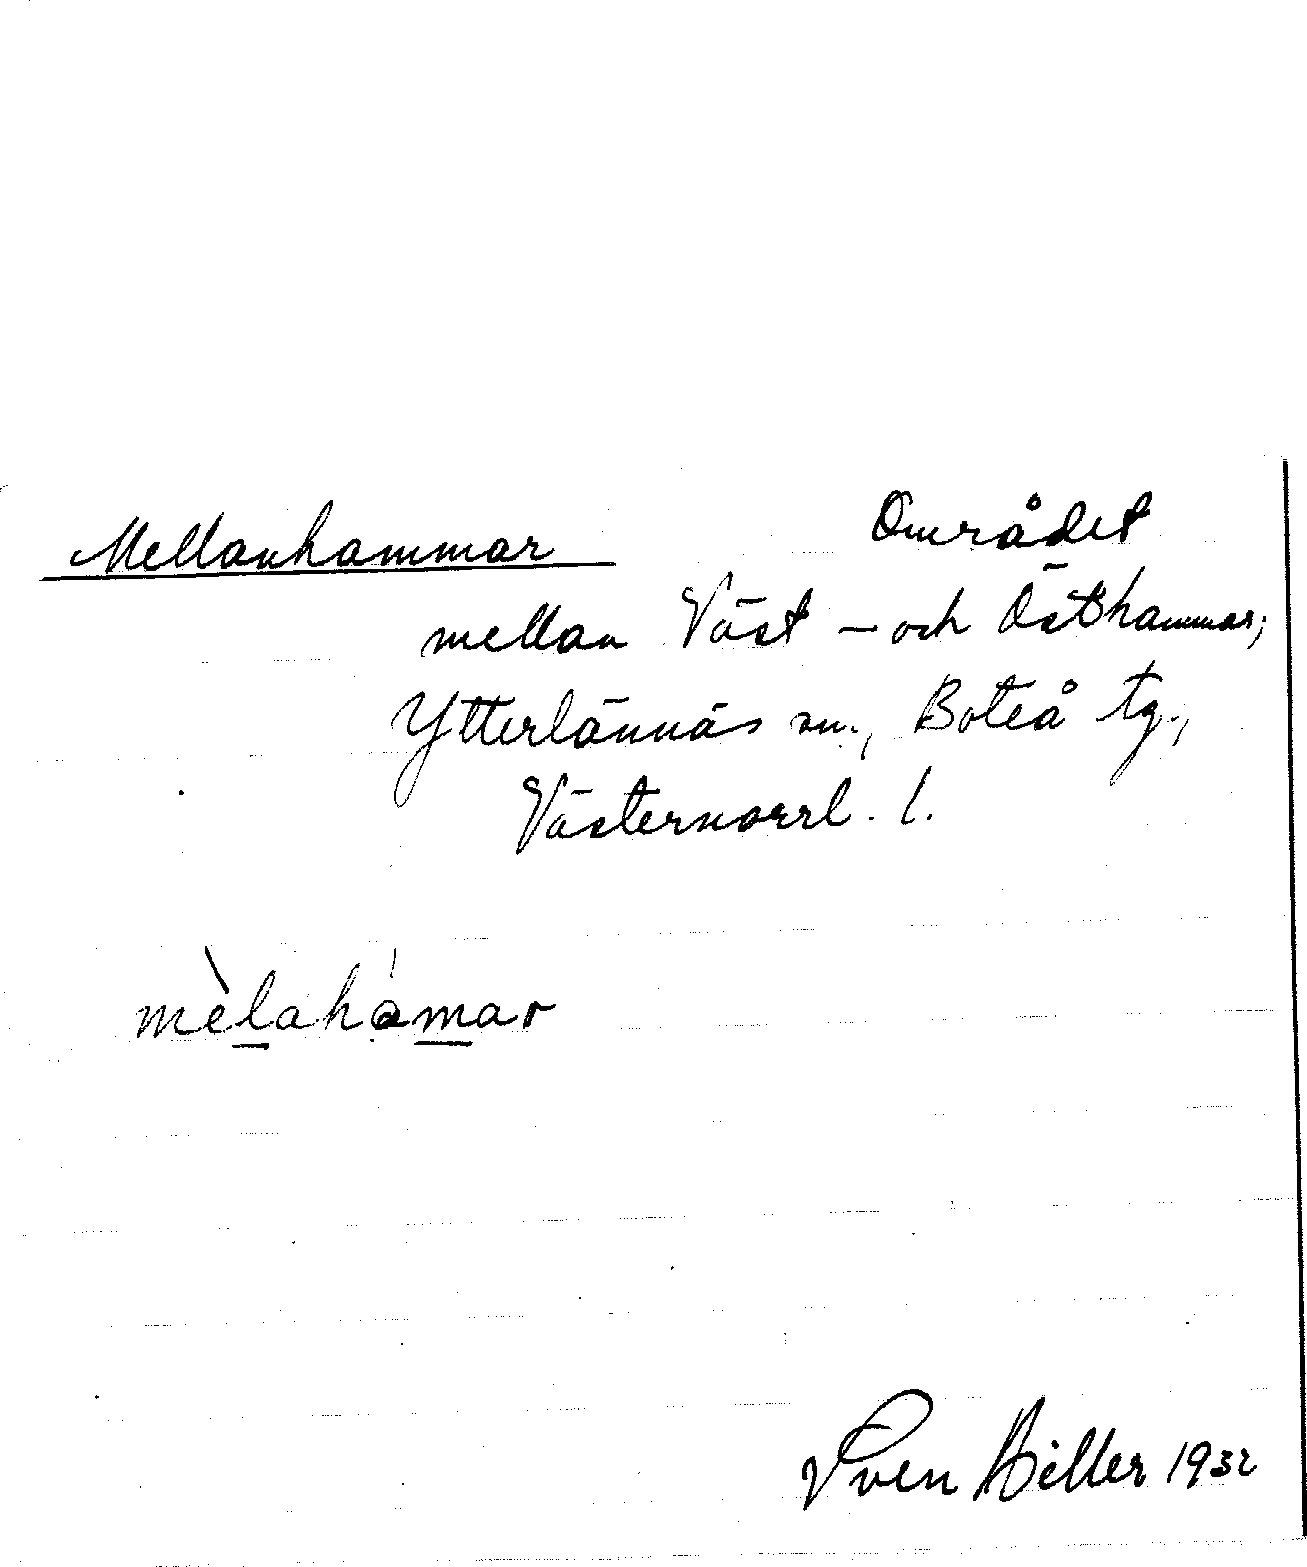 Mellanhammar Området
mellan Väst- och Östhammar;
Ytterlännäs sn., Boteå tg.,
Västernorrl. l.
mèlahàmar
Sven Hiller 1932